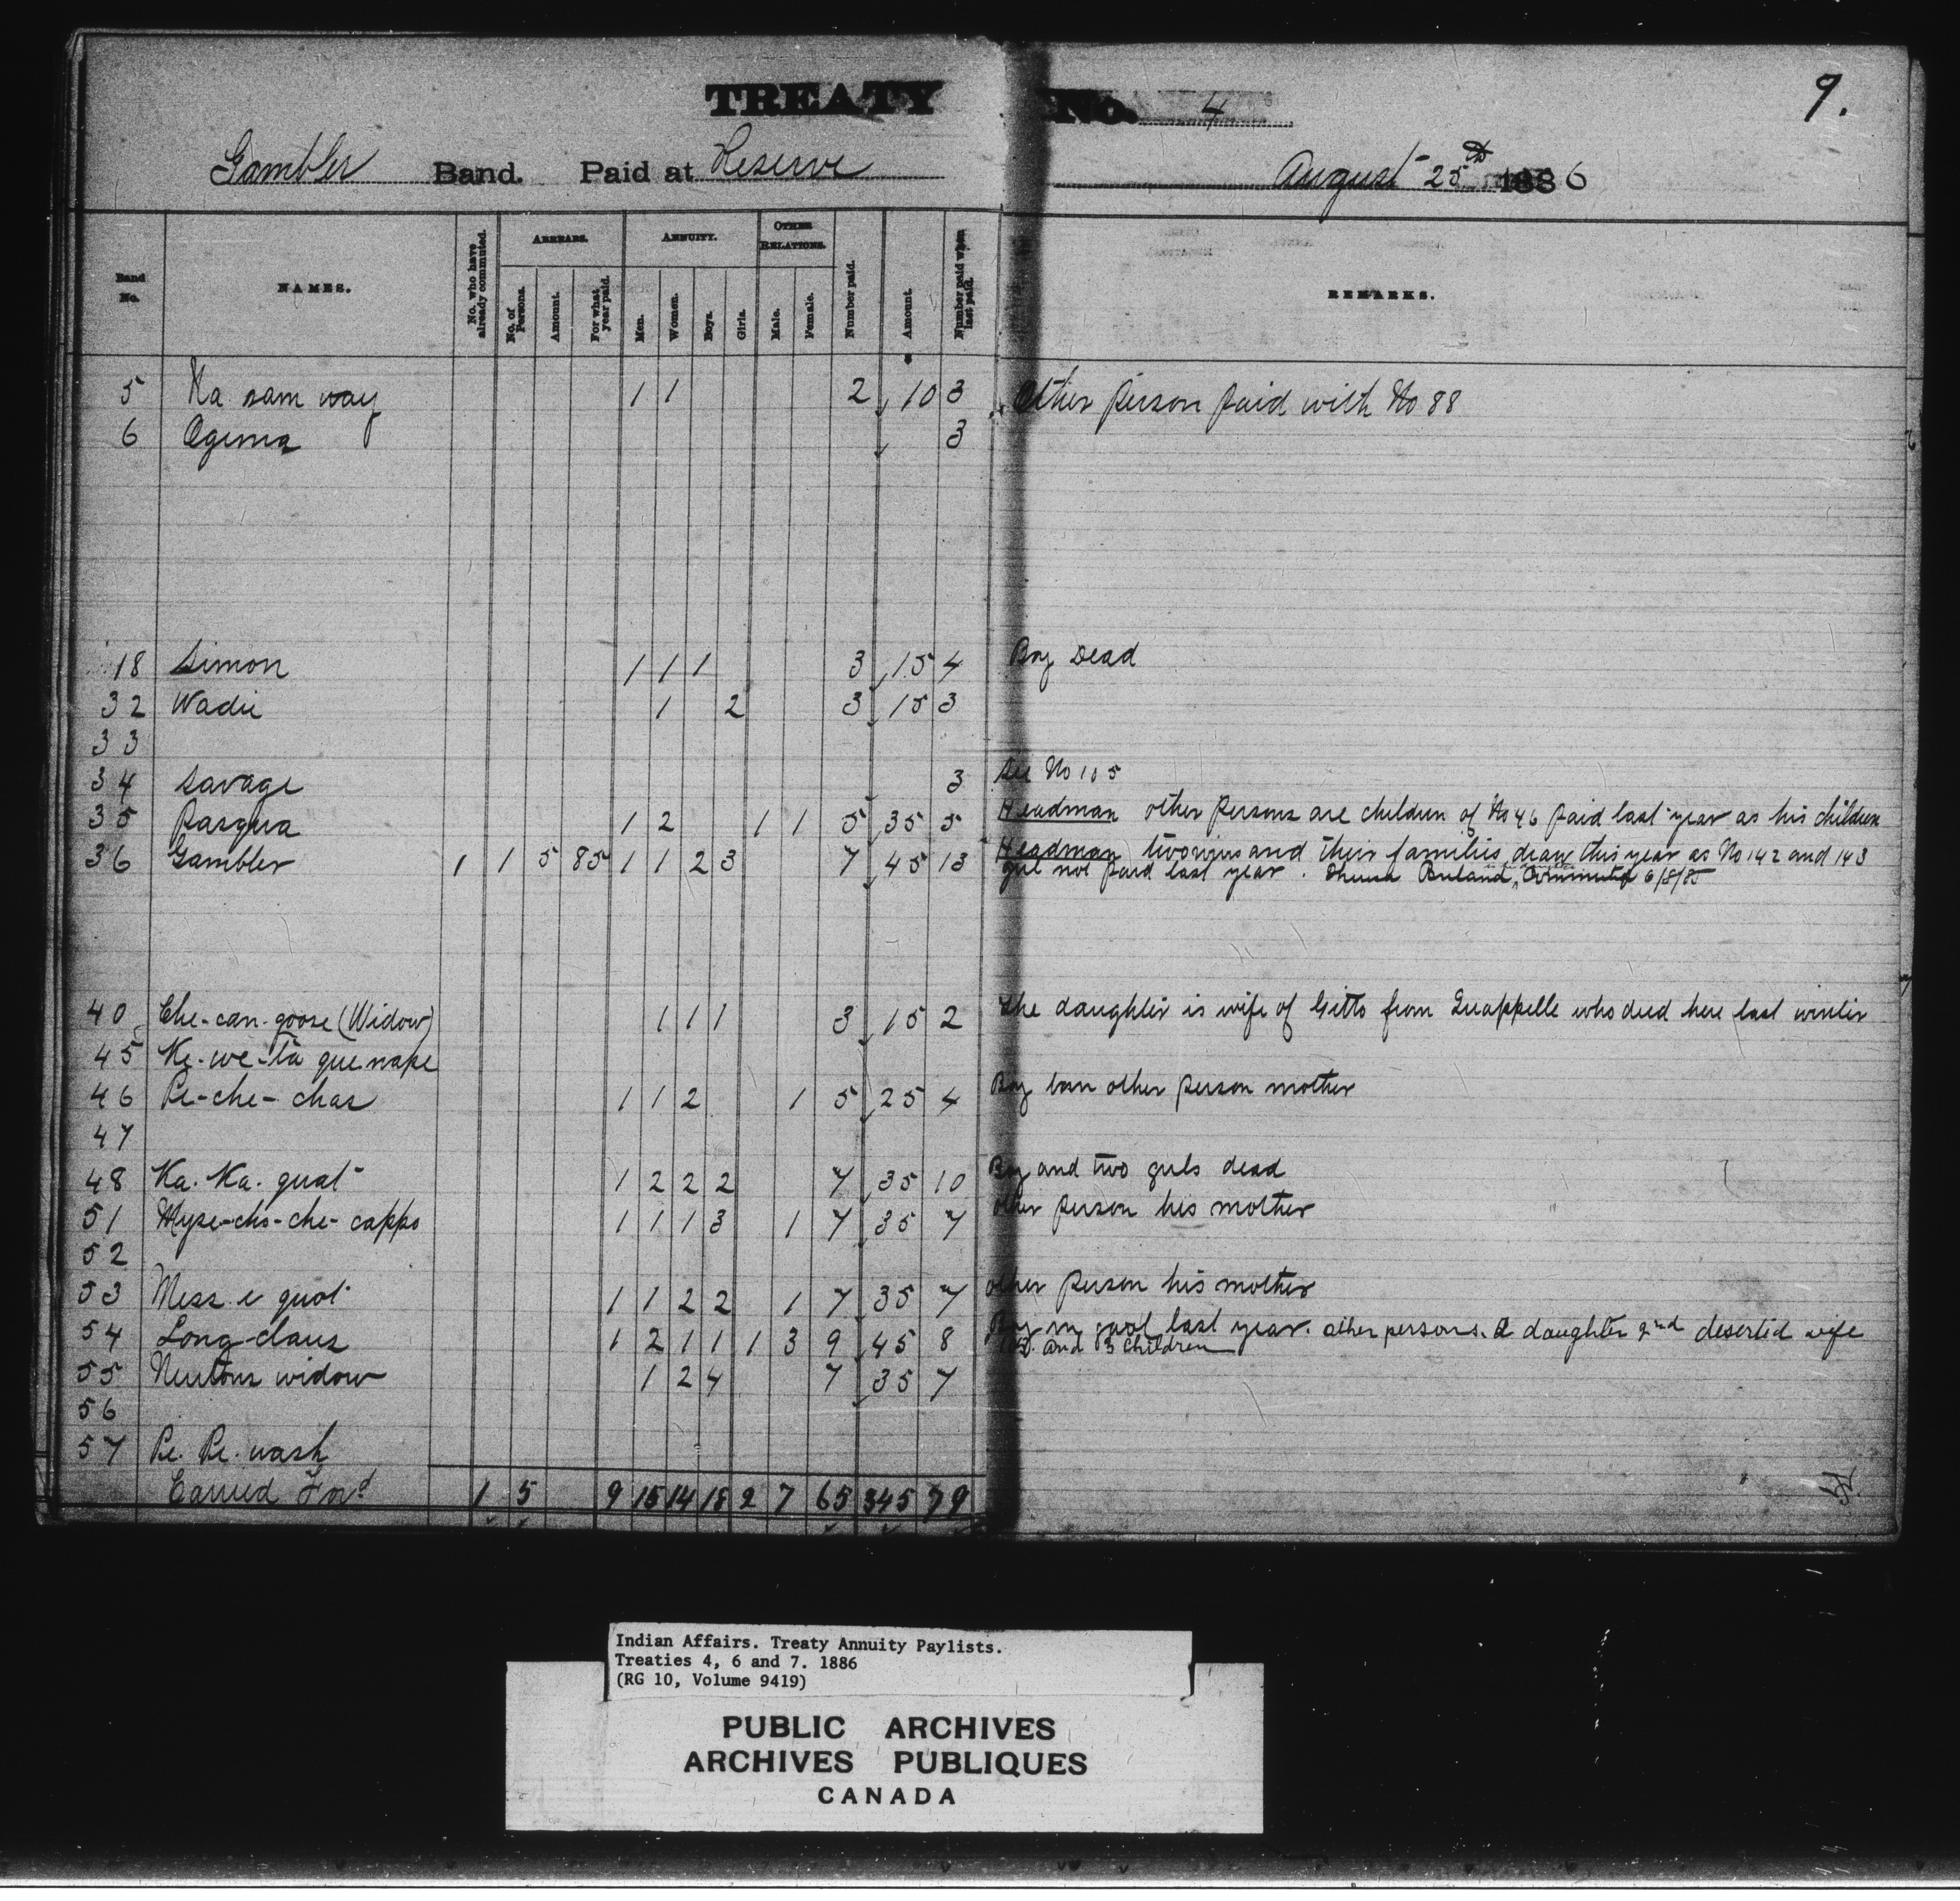 TREATY No. 4
9.
Gambler Band. Paid at Reserve August 25th 1886
Band No. NAMES. No. who have already commuted. ARREARS. No. of Persons. Amount. For what year paid. ANNUITY. Men. Women. Boys. Girls. OTHER RELATIONS. Male. Female. Number paid. Amount. Number paid when last paid. REMARKS.
5 Ka sam way 1 1 2 10 3 Other person paid with No 88
6 Ogema 3
18 Simon 1 1 1 3 15 4 Boy Dead
32 Wadie 1 2 3 15 3
33
34 Savage 3 See No 105
35 Pasqua 1 2 1 1 5 35 5 Headman other persons are children of No 46 paid last year as his children
36 Gambler 1 1 5 85 1 1 2 3 7 45 13 Headman two wives and their families draw this year as No 142 and 143
girl not paid last year. Commuted 6/8/85
40 Che-can-goose (Widow) 1 1 1 3 15 2 The daughter is wife of Gitto from Quappelle who died here last winter
45 Ke-we-ta que nape
46 Pe-che-chas 1 1 2 1 5 25 4 Boy born other person mother
47
48 Ka. Ka. quat 1 2 2 2 7 35 10 Boy and two girls dead
51 Myse-cho-che-capps 1 1 1 3 1 7 35 7 other person his mother
52
53 Mess e quot 1 1 2 2 1 7 35 7 other person his mother
54 Long claws 1 2 1 1 1 3 9 45 8 Boy in gaol last year. other persons. a daughter 2nd deserted wife
and 3 children
55 Neutons widow 1 2 4 7 35 7
56
57 Pe. Pe. wash
Carried Ford 1 5 9 15 14 18 2 7 65 345 79
Indian Affairs. Treaty Annuity Paylists.
Treaties 4, 6 and 7. 1886
(RG 10, Volume 9419)
PUBLIC ARCHIVES
ARCHIVES PUBLIQUES
CANADA